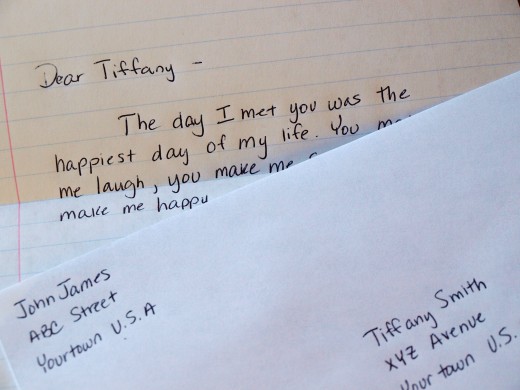 Dear Tiffany -
The day I met you was the
happiest day of my life. You
me laugh, you make me
make me happy
John James
ABC Street
Yourtown U.S.A
Tiffany Smith
XYZ Avenue
Your town U.S.